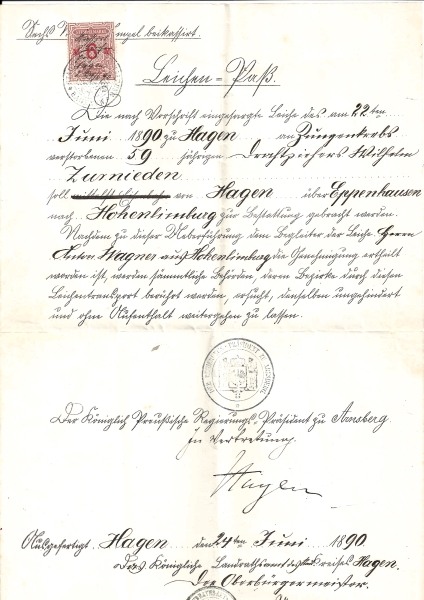 Sechs Stempel beikassirt.
6
Leichen=Paß.
Die nach Vorschrift eingesargte Leiche des am 22ten
Juni 1890 zu Hagen an Zungenkrebs
verstorbenen 59 jährigen Drahtziehers Wilhelm
Zurnieden
soll von Hagen über Eppenhausen
nach Hohenlimburg zur Bestattung gebracht werden.
Nachdem zu dieser Ueberführung dem Begleiter der Leiche Herrn
Anton Wagner aus Hohenlimburg die Genehmigung ertheilt
worden ist, werden sämmtliche Behörden, deren Bezirke durch diesen
Leichentransport berührt werden, ersucht, denselben ungehindert
und ohne Aufenthalt weitergehen zu lassen.
Der Königlich Preußische Regierungs-Präsident zu Arnsberg.
In Vertretung.
Hagen
Ausgefertigt Hagen den 24ten Juni 1890
Das Königliche Landrathsamt des Kreises Hagen.
Der Oberbürgermeister.